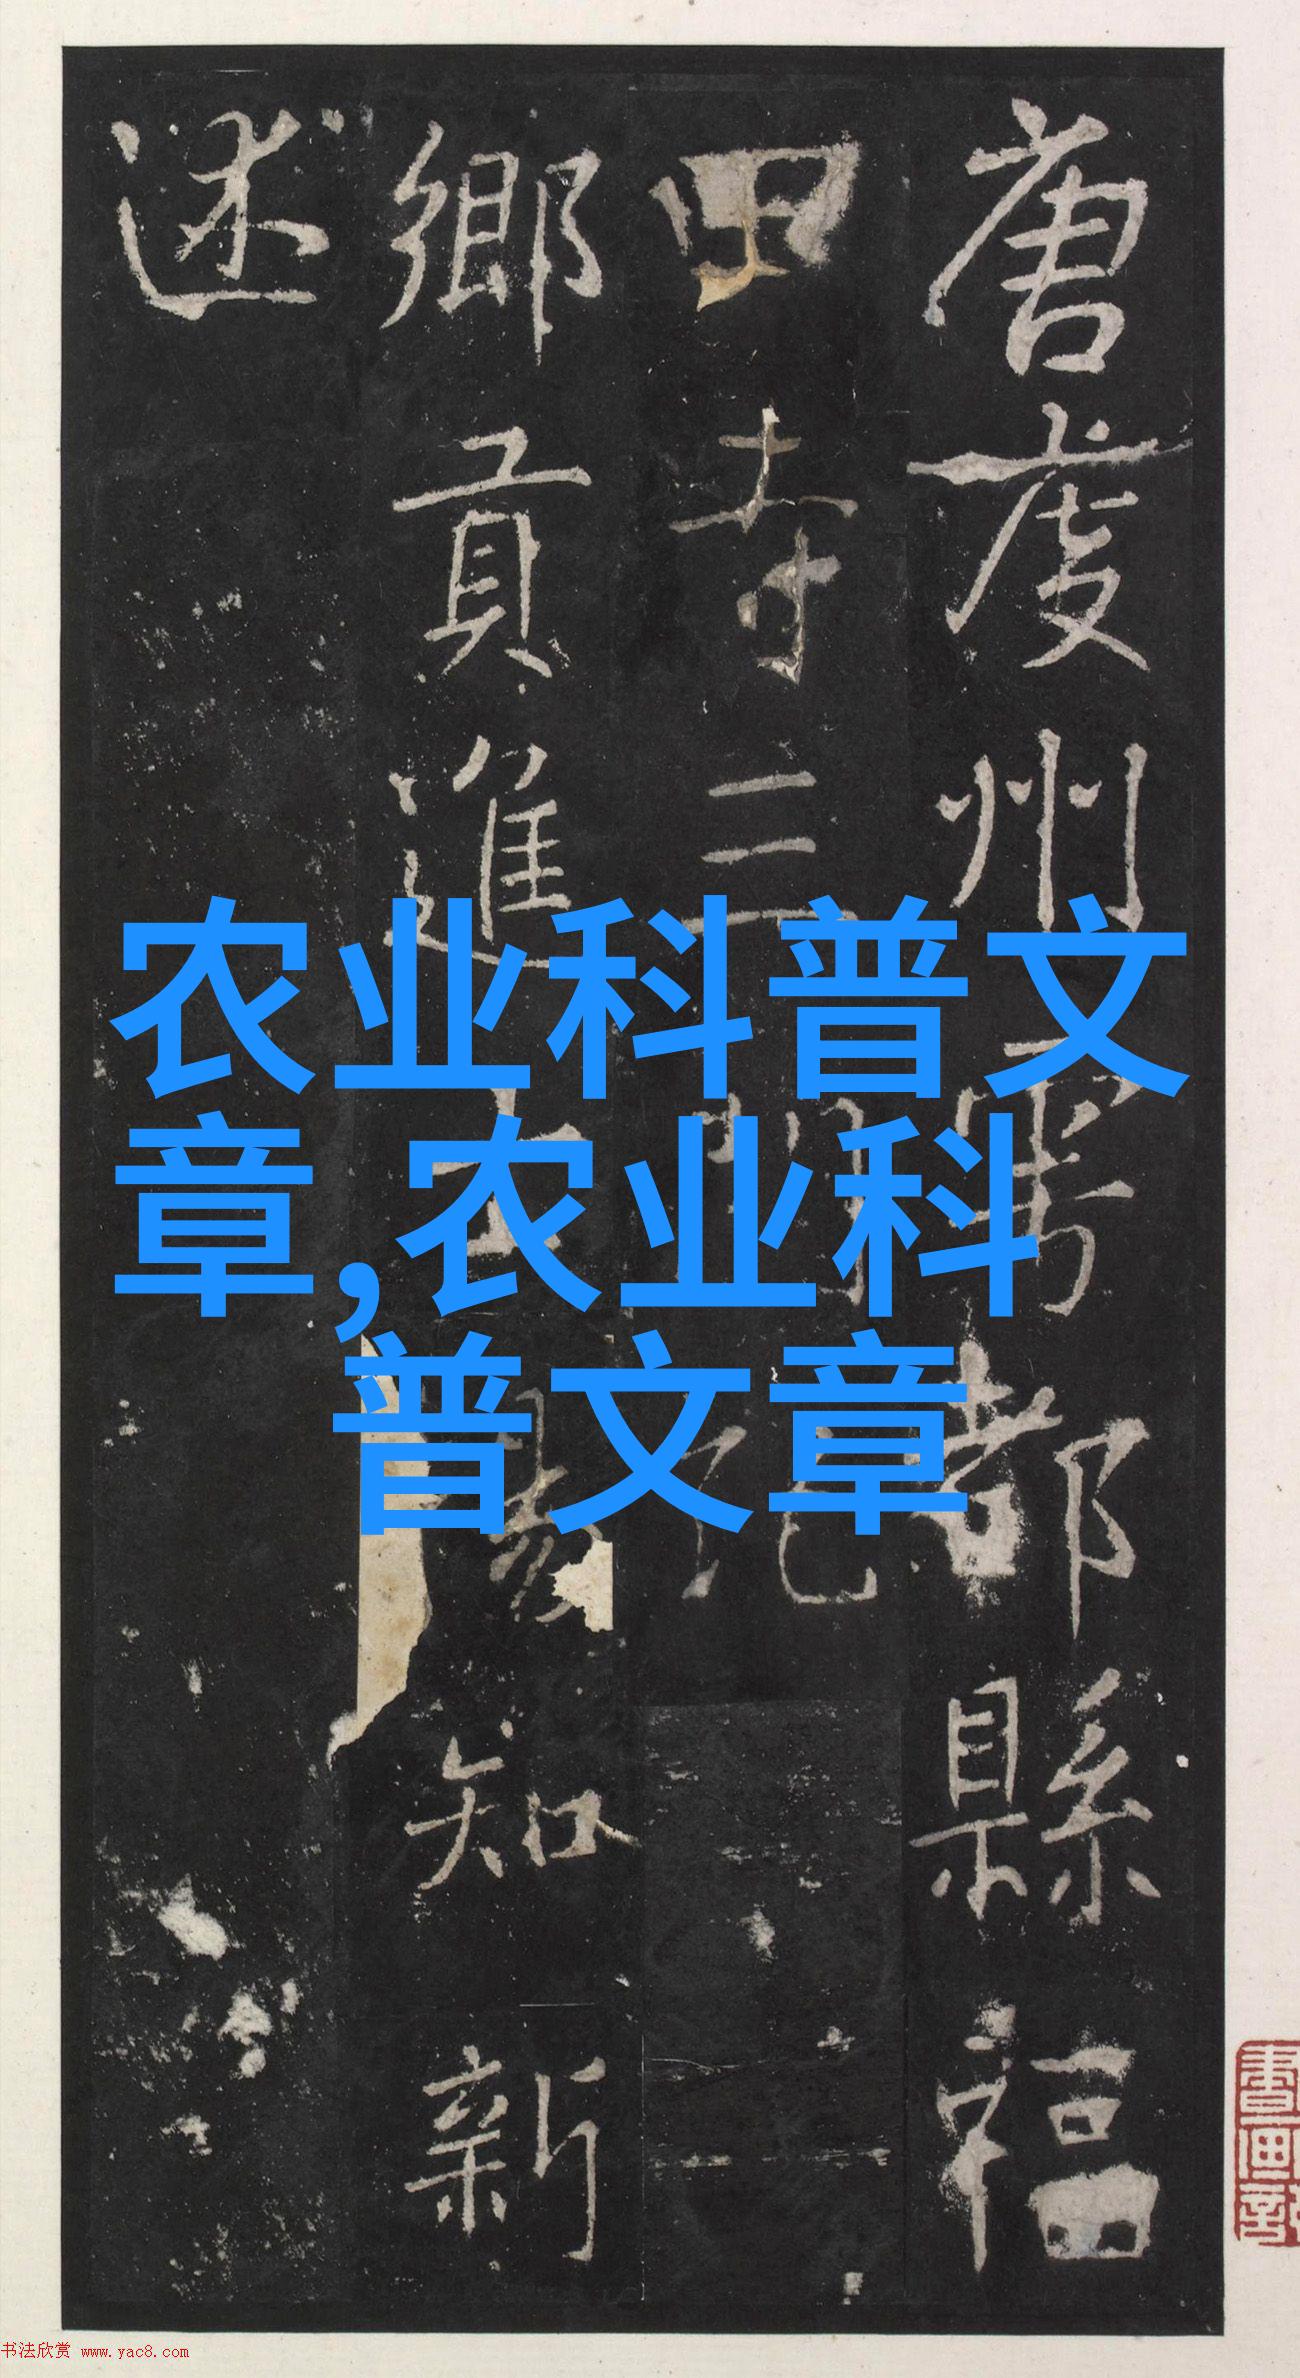 唐虔州雩都縣福
田寺三門記
鄉貢進士知新
述
农业科普文
章,农业科
普文章
書画
书法欣赏 www.yac8.com